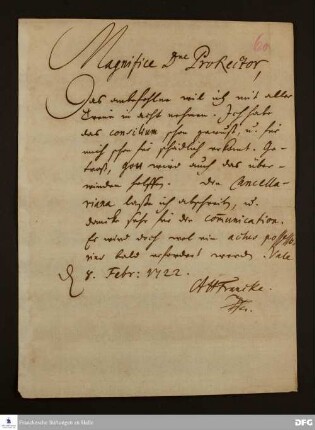 Magnifice Dne ProRector,
Das anbefohlne will ich mit aller
Treue in acht nehmen. Ich habe
das consilium schon gewust, u. für
mich schon für schädlich erkent. Ge-
trost, Gott wird auch das über-
winden helffen. Die Cancella-
riana laße ich abschreiben, u.
danck sehr für die communication.
Es wird doch wol ein actus possesso-
rius bald erfordert werden. Vale
d. 8. Febr: 1722.
AHFrancke.
Franckesche Stiftungen zu Halle
DFG